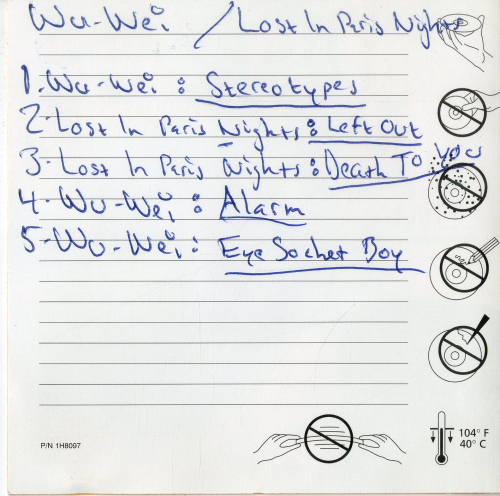 Wu-Wei / Lost In Paris Nights
1. Wu-Wei : Stereotypes
2. Lost In Paris Nights : Left Out
3. Lost In Paris Nights : Death To You
4. Wu-Wei : Alarm
5. Wu-Wei : Eye Socket Boy
104° F
40° C
P/N 1H8097